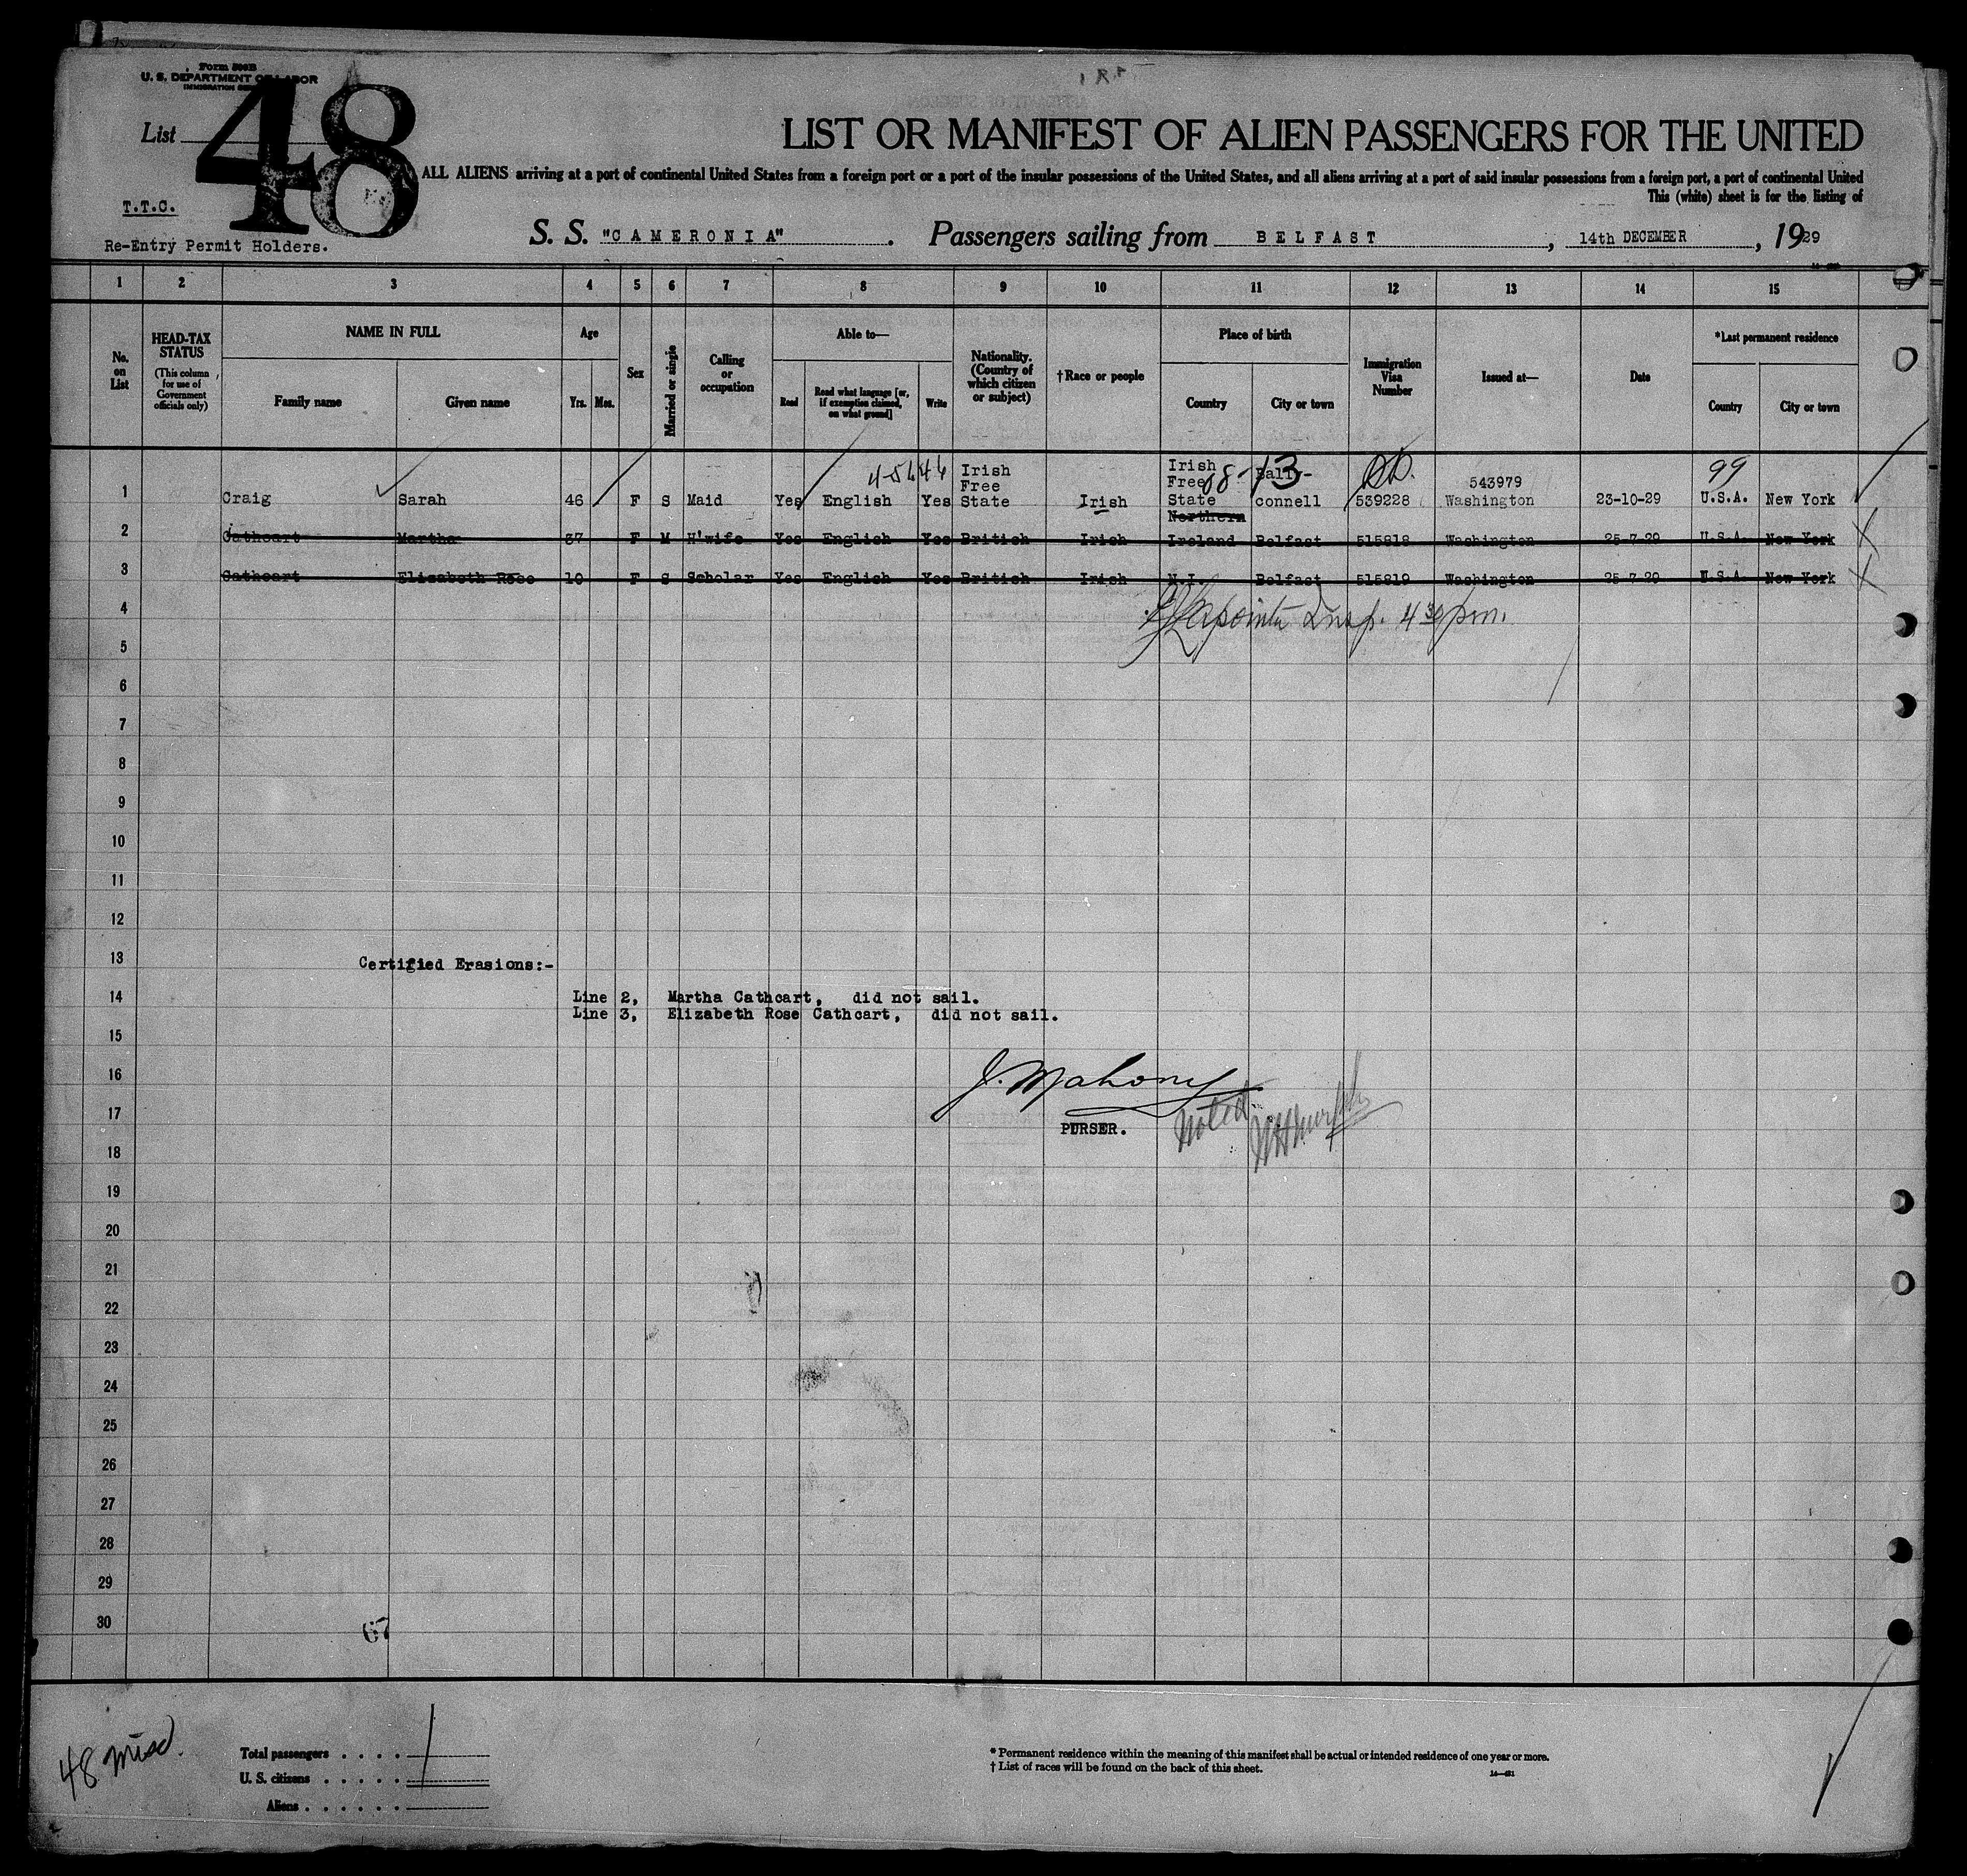 Form 500B
U. S. DEPARTMENT OF LABOR
IMMIGRATION
List 48
T.T.C.
Re-Entry Permit Holders.
LIST OR MANIFEST OF ALIEN PASSENGERS FOR THE UNITED
ALL ALIENS arriving at a port of continental United States from a foreign port or a port of the insular possessions of the United States, and all aliens arriving at a port of said insular possessions from a foreign port, a port of continental United
This (white) sheet is for the listing of
S. S. "CAMERONIA". Passengers sailing from BELFAST, 14th DECEMBER, 1929
1 2 3 4 5 6 7 8 9 10 11 12 13 14 15
No. on List
HEAD-TAX STATUS (This column for use of Government officials only)
NAME IN FULL Family name Given name
Age Yrs. Mos.
Sex
Married or single
Calling or occupation
Able to— Read Read what language [or, if exemption claimed, on what ground] Write
Nationality. (Country of which citizen or subject)
†Race or people
Place of birth Country City or town
Immigration Visa Number
Issued at—
Date
*Last permanent residence Country City or town
1 Craig Sarah 46 F S Maid Yes English Yes Irish Free State Irish Irish Free State Bally-connell 539228 543979 Washington 23-10-29 99 U.S.A. New York
2 Cathcart Martha 37 F M H'wife Yes English Yes British Irish Northern Ireland Belfast 515818 Washington 25-7-29 U.S.A. New York
3 Cathcart Elizabeth Rose 10 F S Scholar Yes English Yes British Irish N.I. Belfast 515819 Washington 25-7-29 U.S.A. New York
4 Lapointe Insp. 4 30 pm.
5
6
7
8
9
10
11
12
13 Certified Erasions:-
14 Line 2, Martha Cathcart, did not sail.
Line 3, Elizabeth Rose Cathcart, did not sail.
15
16 J. Mahony
17 PURSER. Noted
18
19
20
21
22
23
24
25
26
27
28
29
30
67
48 Misd.
Total passengers . . . . 1
U. S. citizens . . . . .
Aliens . . . . . .
* Permanent residence within the meaning of this manifest shall be actual or intended residence of one year or more.
† List of races will be found on the back of this sheet.